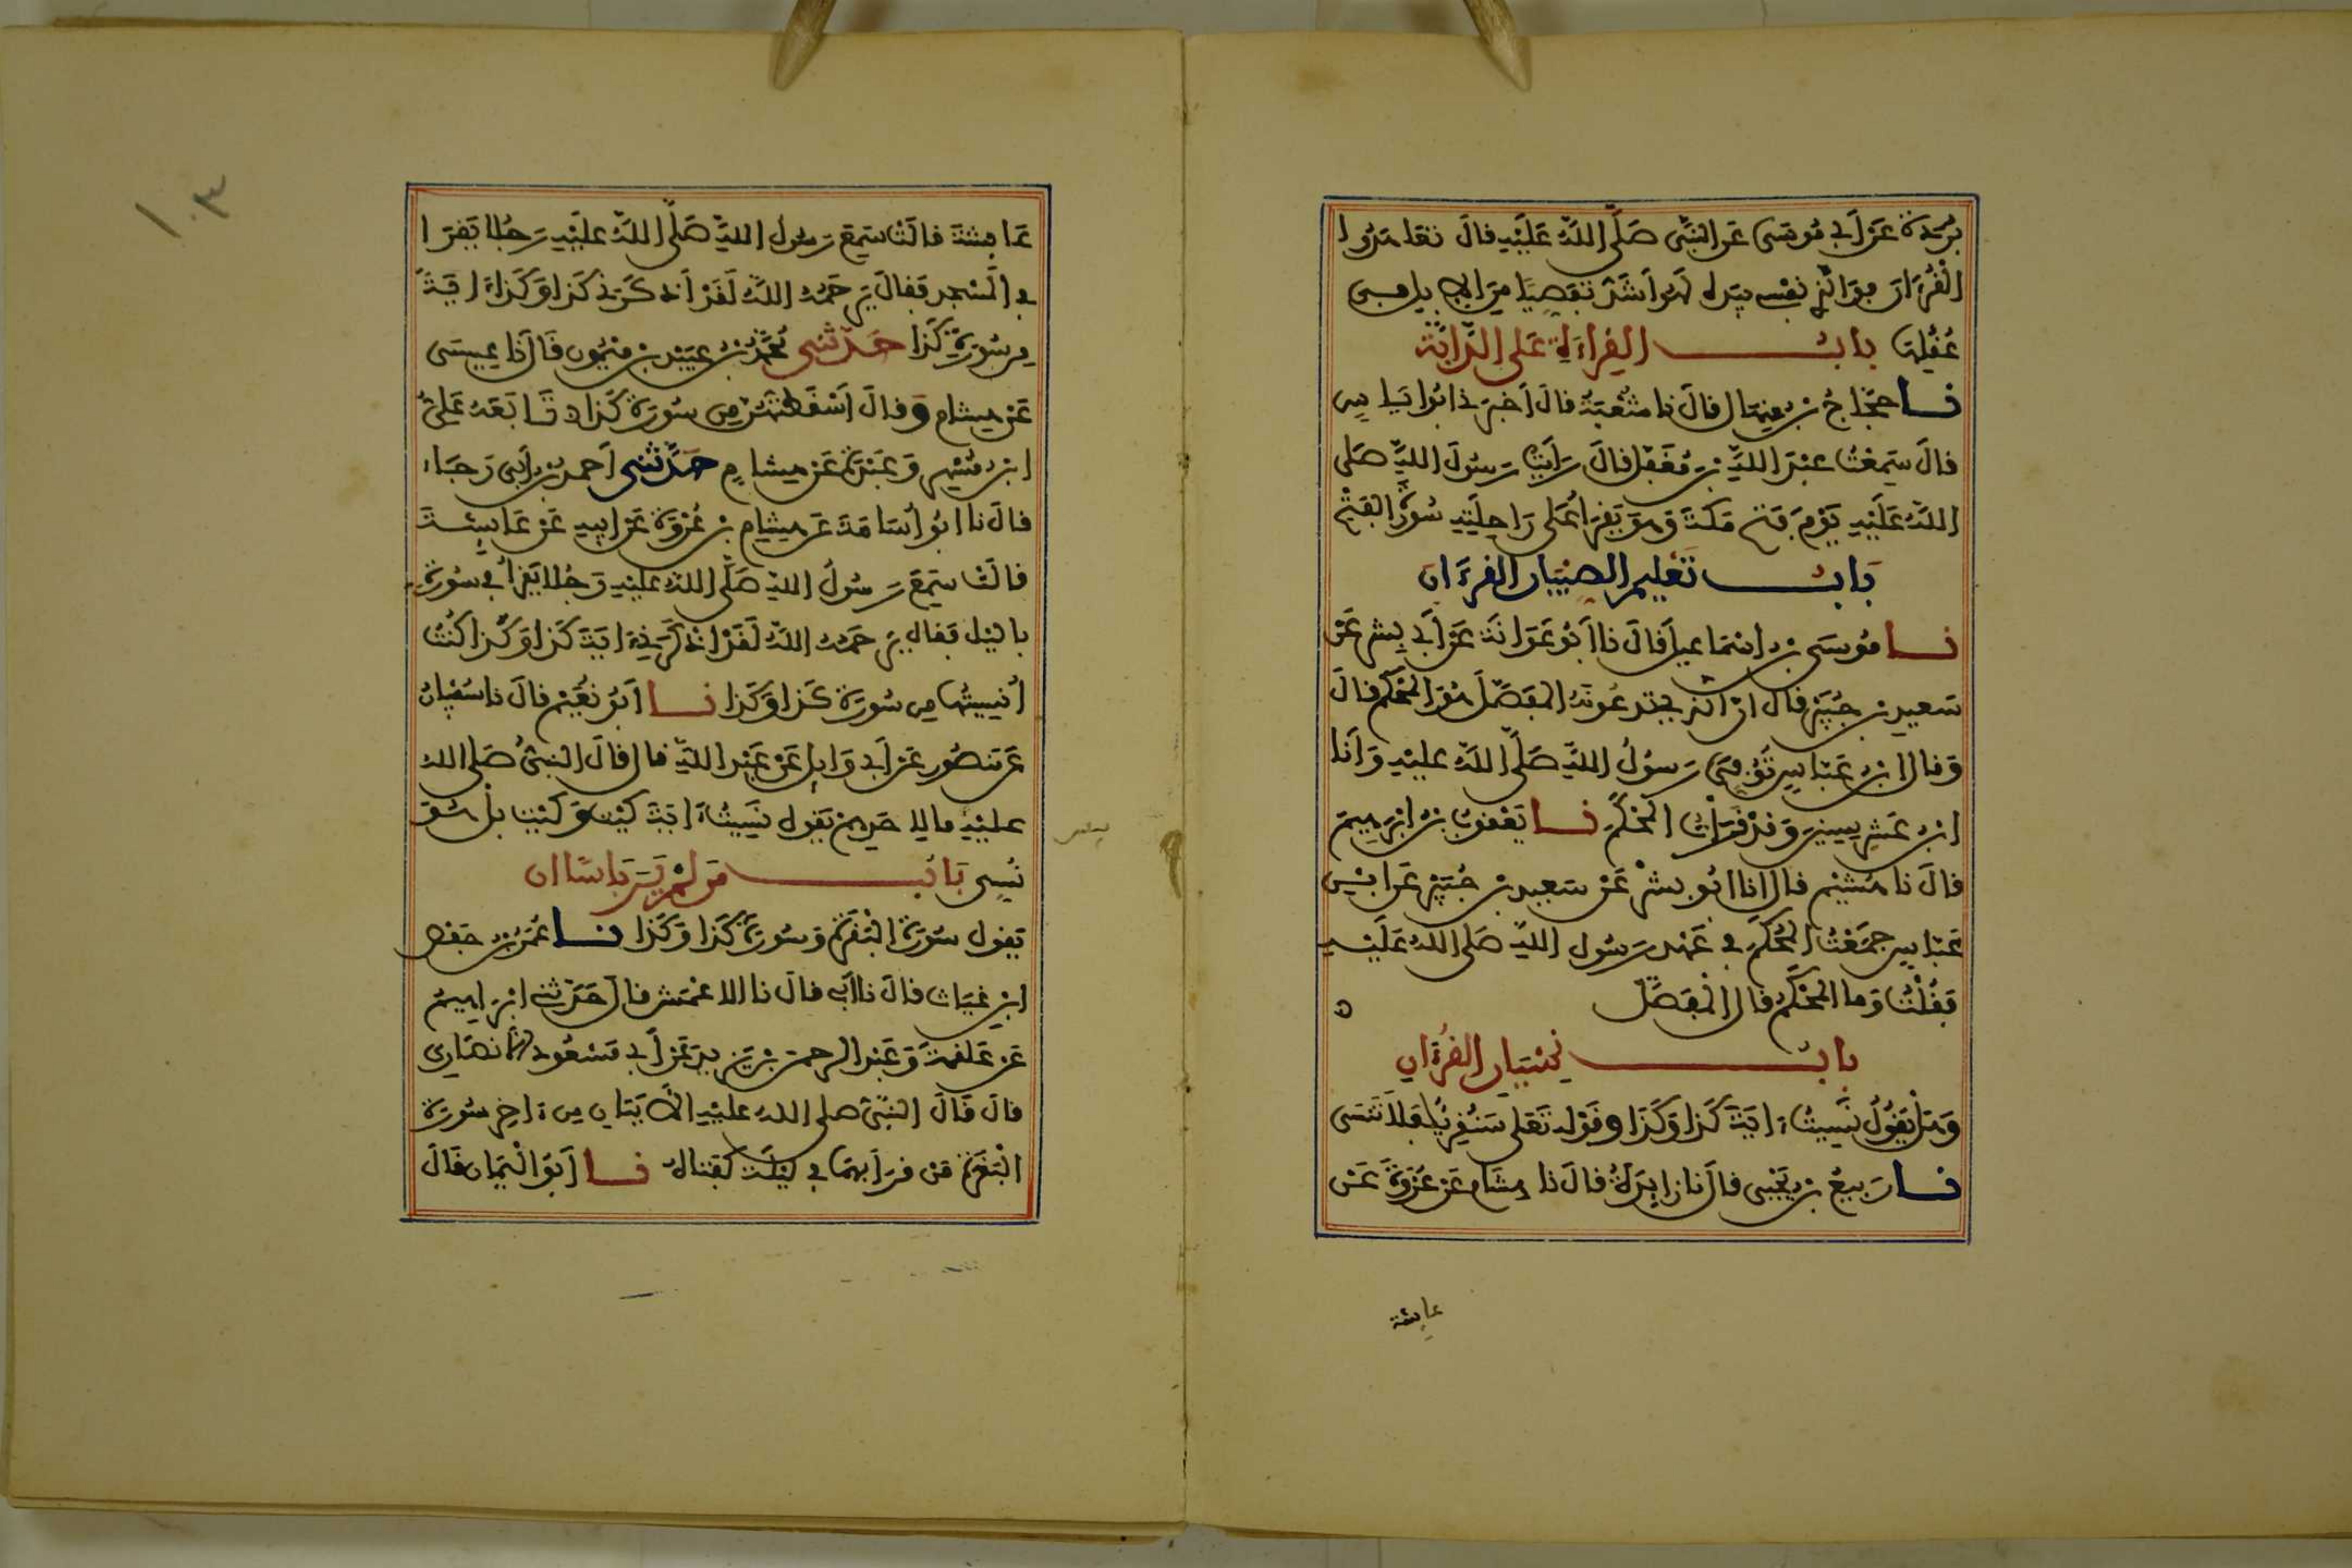 بردة عن أبي موسى عن النبي صلى الله عليه قال تعاهدوا
القرءان فوالذي نفسي بيده لهو أشد تفصيا من الإبل في
عقلها باب القراءة على الدابة
نا حجاج بن منهال قال نا شعبة قال أخبرني أبو اياس
قال سمعت عبد الله بن مغفل قال رأيت رسول الله صلى
الله عليه يوم فتح مكة وهو يقرأ على راحلته سورة الفتح
باب تعليم الصبيان القرءان
نا موسى بن إسماعيل قال نا أبو عوانة عن أبي بشر عن
سعيد بن جبير قال ان الذي تدعونه المفصل هو المحكم قال
وقال ابن عباس توفي رسول الله صلى الله عليه وأنا
ابن عشر سنين وقد قرأت المحكم نا يعقوب بن إبرهيم
قال نا هشيم قال انا أبو بشر عن سعيد بن جبير عن ابن
عباس جمعت المحكم في عهد رسول الله صلى الله عليه
فقلت وما المحكم قال المفصل ه
باب نسيان القرءان
وهل يقول نسيت ءاية كذا وكذا وقوله تعلى سنقريك فلا تنسى
نا ربيع بن يحيى قال نا زايدة قال نا هشام عن عروة عن
عايشة
عايشة قالت سمع رسول الله صلى الله عليه رجلا يقرا
في المسجد فقال يرحمه الله لقد أذكرني كذا وكذا ءاية
من سورة كذا حدثني محمد بن عبيد بن ميمون قال نا عيسى
عن هشام وقال أسقطتهن من سورة كذا ه تابعه علي
ابن مسهر وعبدة عن هشام حدثني أحمد بن أبي رجاء
قال نا ابو أسامة عن هشام بن عروة عن ابيه عن عايشة
قالت سمع رسول الله صلى الله عليه رجلا يقرأ في سورة
باليل فقال يرحمه الله لقد اذكرني ءاية كذا وكذا كنت
أنسيتها من سورة كذا وكذا نا أبو نعيم قال نا سفيان
عن منصور عن أبي وايل عن عبد الله قال قال النبي صلى الله
عليه ما لاحدهم يقول نسيت ءاية كيت وكيت بل هو
نسي باب من لم ير باسا ان
يقول سورة البقرة وسورة كذا وكذا نا عمر بن حفص
ابن غياث قال نا أبي قال نا الاعمش قال حدثني إبراهيم
عن علقمة وعبد الرحمن بن يزيد عن أبي مسعود الانصاري
قال قال النبي صلى الله عليه الآيتان من ءاخر سورة
البقرة من قرأ بهما في ليلة كفتاه نا أبو اليمان قال
١٠٣